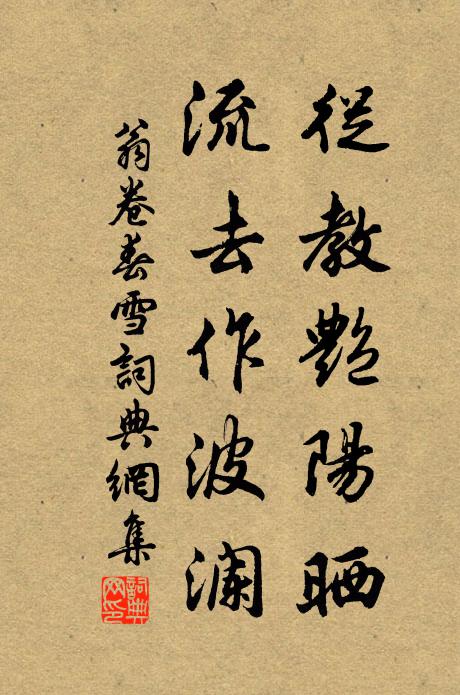 從教艷陽晒
流去作波瀾
翁卷春雪詞典網集
詞典网印